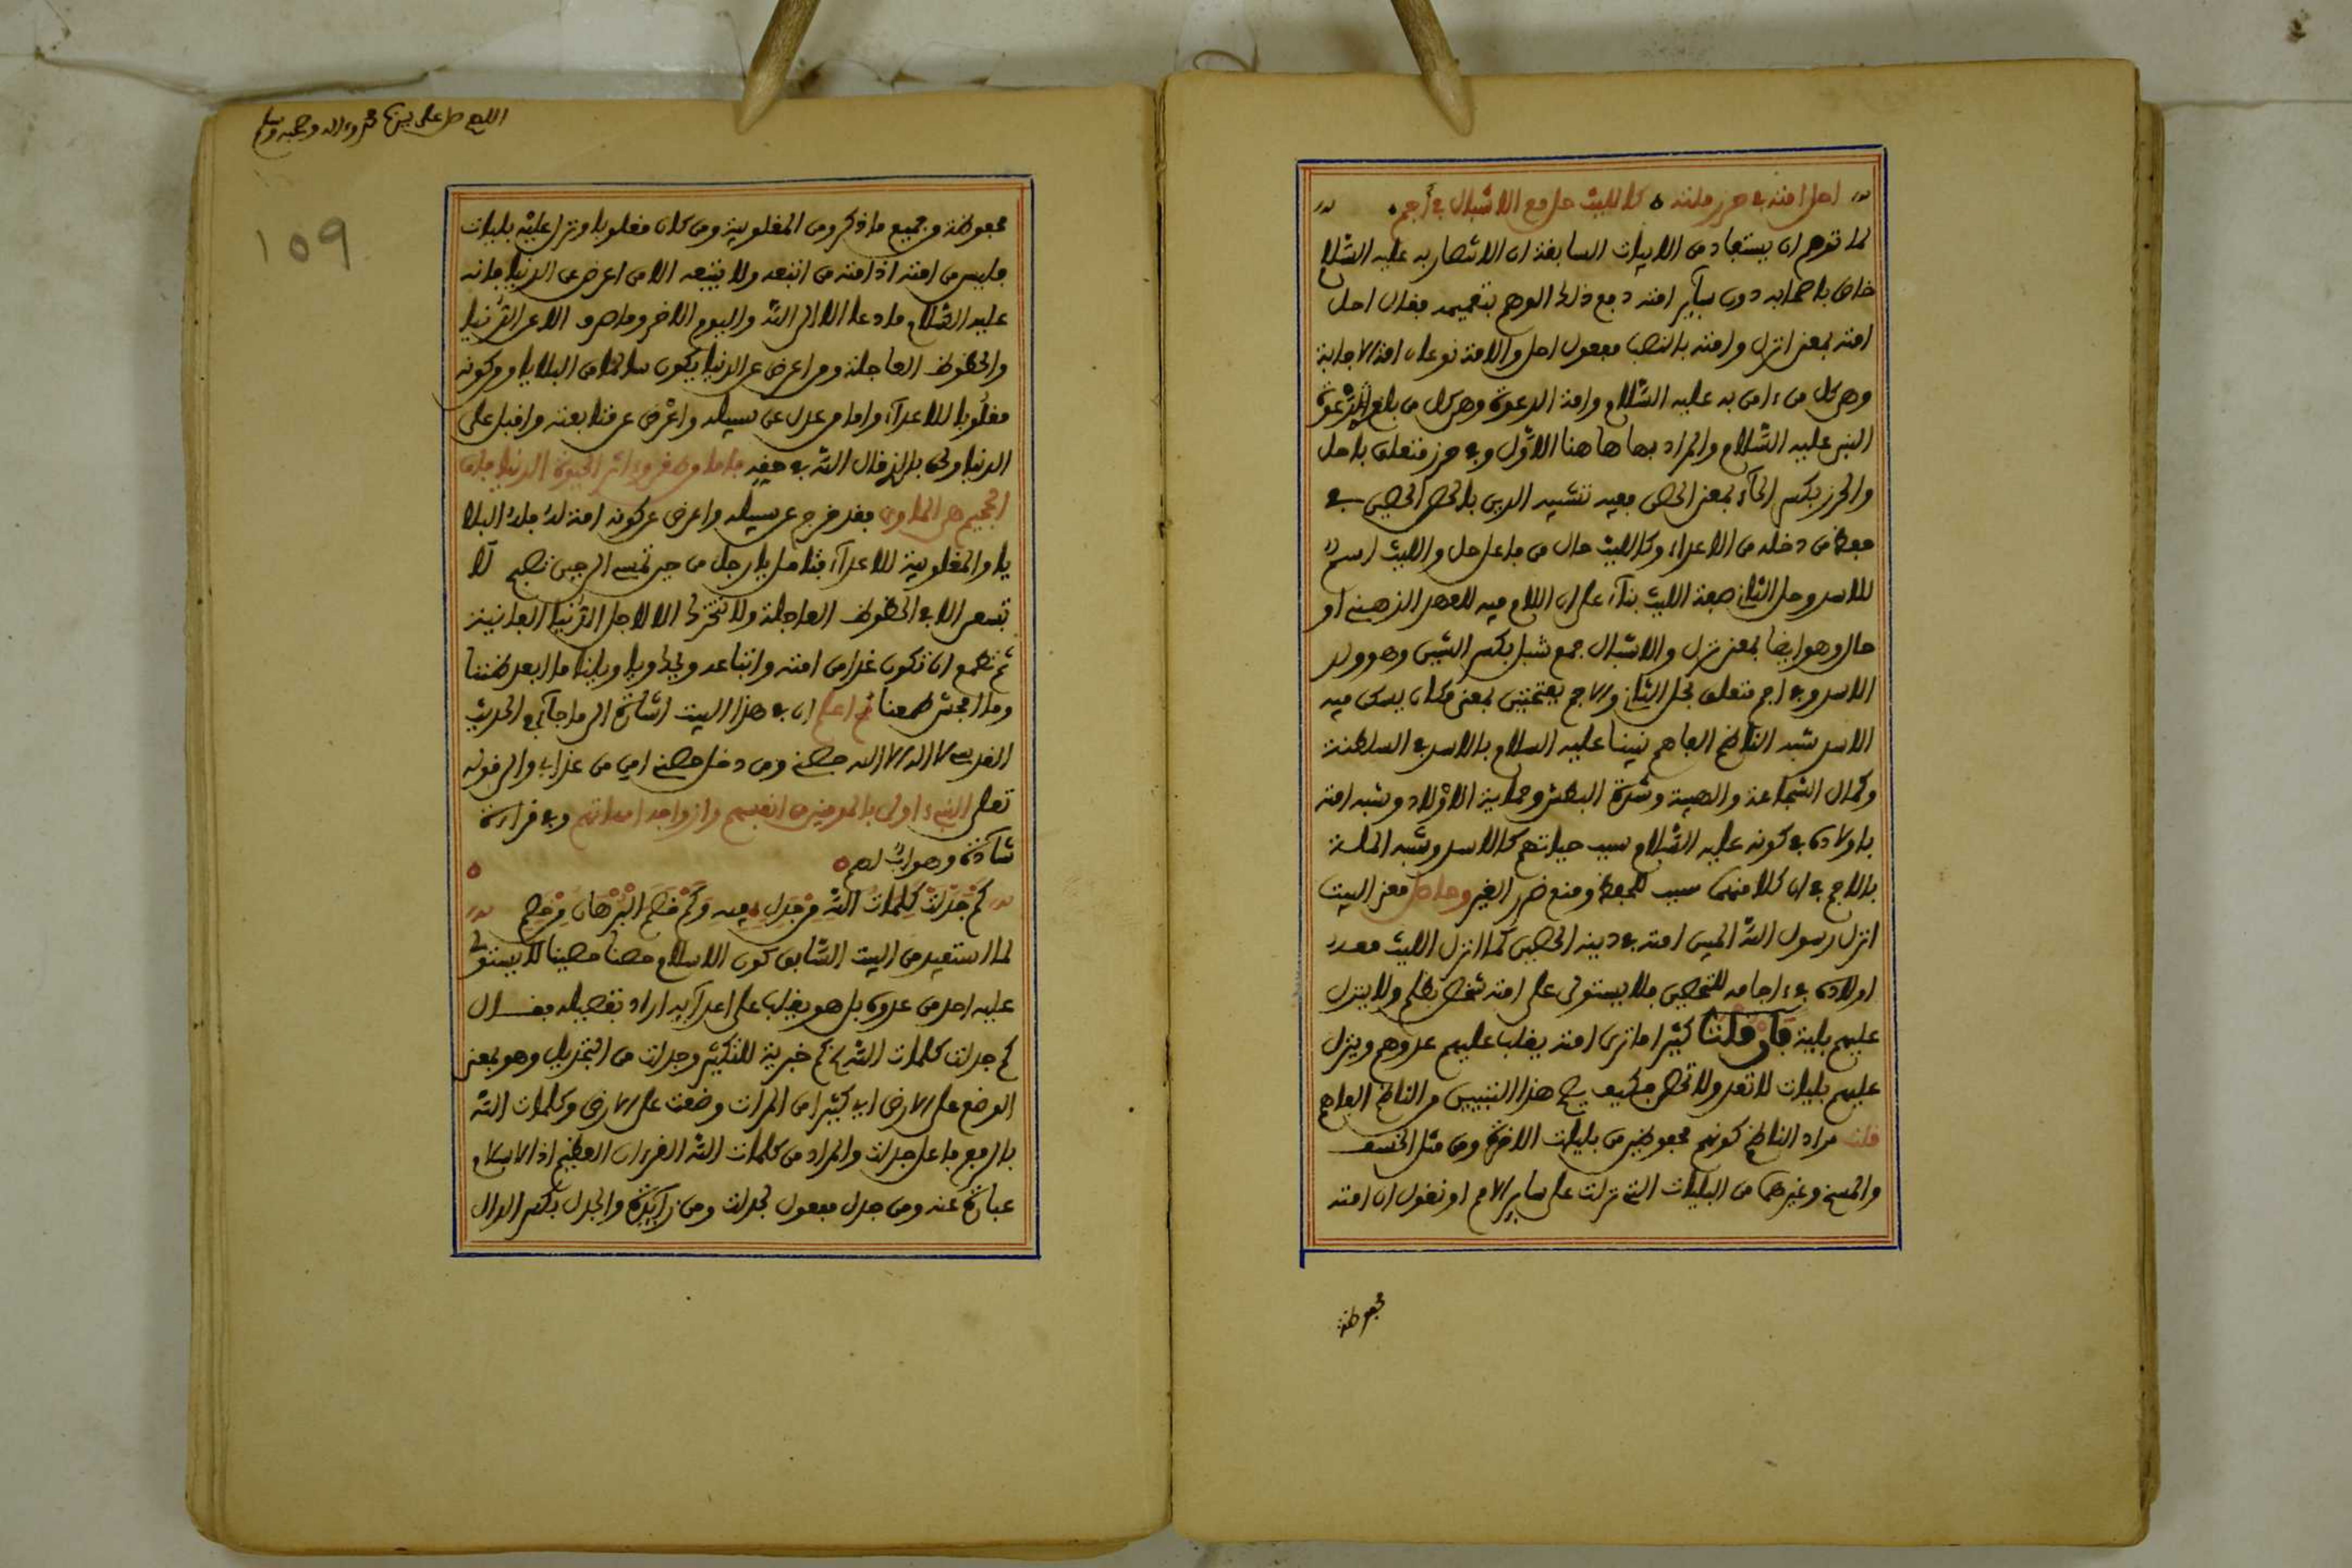 احل امته في حرز ملته ه كالليث حل مع الاشبال في أجم
لما توهم ان يستفاد من الابيات السابقة ان الانتصار به عليه السّلام
خاص باصحابه دون سآير امته دفع ذلك الوهم بتعميمه بقال احل
امته بمعنى انزل وامته بالنصب مفعول احل والامة نوعان امة الاجابة
وهي كل من ءامن به عليه السّلام وامة الدعوة وهي كل من بلغ الدّعوة
النبي عليه السّلام والمراد بها هاهنا الاوّل وفي حرز متعلق باحل
والحرز بكسر الحآء بمعنى الحصن ففيه تشبيه الدين بالحصن الحصين في
حفظ من دخله من الاعداء وكالليث حال من فاعل حل والليث اسمٌ
للاسد وحل الثاني صفة الليث بنآء على ان اللام فيه للعهد الذهني او
حال وهو ايضا بمعنى نزل والاشبال جمع شبل بكسر الشين وهو ولد
الاسد وفي اجم متعلق بحل الثاني والاجم بفتحتين بمعنى مكان يسكن فيه
الاسد شبه الناظم الفاهم نبينا عليه السلام بالاسد في السلطنة
وكمال الشجاعة والهيبة وشدة البطش وحماية الاولاد وشبه امته
باولاده في كونه عليه السّلام سبب حياتهم كالاسد وشبه الملة
بالاجم في ان كلا منهما سبب للحفظ ومنع ضرر الغير وحاصل معنى البيت
انزل رسول الله المبين امته في دينه الحصين كما انزل الليث معه
اولاده في ءاجامه للتحصين فلا يستولى على امته شخص بظلم ولا ينزل
عليهم بلية فان قلت كثيرا ما نرى امته يغلب عليهم عدوهم وينزل
عليهم بليات لا تعد ولا تحصى فكيف يصح هذا التبيين من الناظم الفاهم
قلت مراد الناظم كونهم محفوظين من بليات الاخرة ومن مثل الخسف
والمسخ وغيرهما من البليات التي نزلت على ساير الامم او نقول ان امته
محفوظة
اللهم صل على سيدنا محمد وءاله وصحبه وسلم
109
محفوظة من جميع ما ذكر ومن المغلوبية ومن كان مغلوبا ونزل عليه بليات
فليس من امته اذ امته من اتبعه ولا يتبعه الا من اعرض عن الدنيا فانه
عليه السّلام ما دعا الا الى الله واليوم الاخر وما صرف الا عن الدّنيا
والحظوظ العاجلة ومن اعرض عن الدنيا يكون سالما من البلايا ومن كونه
مغلُوبا للاعدآء واما من عدل عن سبيله واعْرض عن متابعته واقبل على
الدنيا ولحق بالذين قال الله في حقهم فاما من طغى وءاثر الحيوة الدنيا فان
الجحيم هي الماوى فقد خرج عن سبيله واعرض عن كونه امته له فله البلا
يا والمغلوبية للاعدآء فتامل يا رجل من حين تمسي الى حين تصبح لا
تسعى الا في الحظوظ العاجلة ولا تتحرك الا لاجل الدّنيا الفانية
ثم تطمع ان تكون غدا من امته واتباعه ويحك ويا ويلنا ما ابعد ظننا
وما افحش طمعنا ثم اعلم ان في هذا البيت اشارة الى ما جآء في الحديث
القدسي لا اله الا الله حصني ومن دخل حصني امن من عذابي والى قوله
تعلى النبيء اولى بالمومنين من انفسهم وازواجه امهاتهم وفي قراءة
شاذة وهو ابٌ لهم ه
كَمْ جَدّلَتْ كَلِمَاتُ اللهِ مِنْ جَدِلٍ فيه وَكَمْ خَصَمَ الْبُرْهَانُ مِنْ خَصِمِ
لما استفيد من البيت السّابق كون الاسلام حصنا حصينا لا يستولى
عليه احد من عدوه بل هو يغلب على اعدآيه اراد تفصيله بقــال
كم جدلت كلمات الله كم خبرية للتكثير وجدلت من التجديل وهو بمعنى
الوضع على الارض اى كثيرا من المرات وضعت على الارض وكلمات الله
بالرفع فاعل جدلت والمراد من كلمات الله القرءان العظيم اذ الاسلام
عبارة عنه ومن جدل مفعول لجدلت ومن زآيدة والجدل بكسر الدال